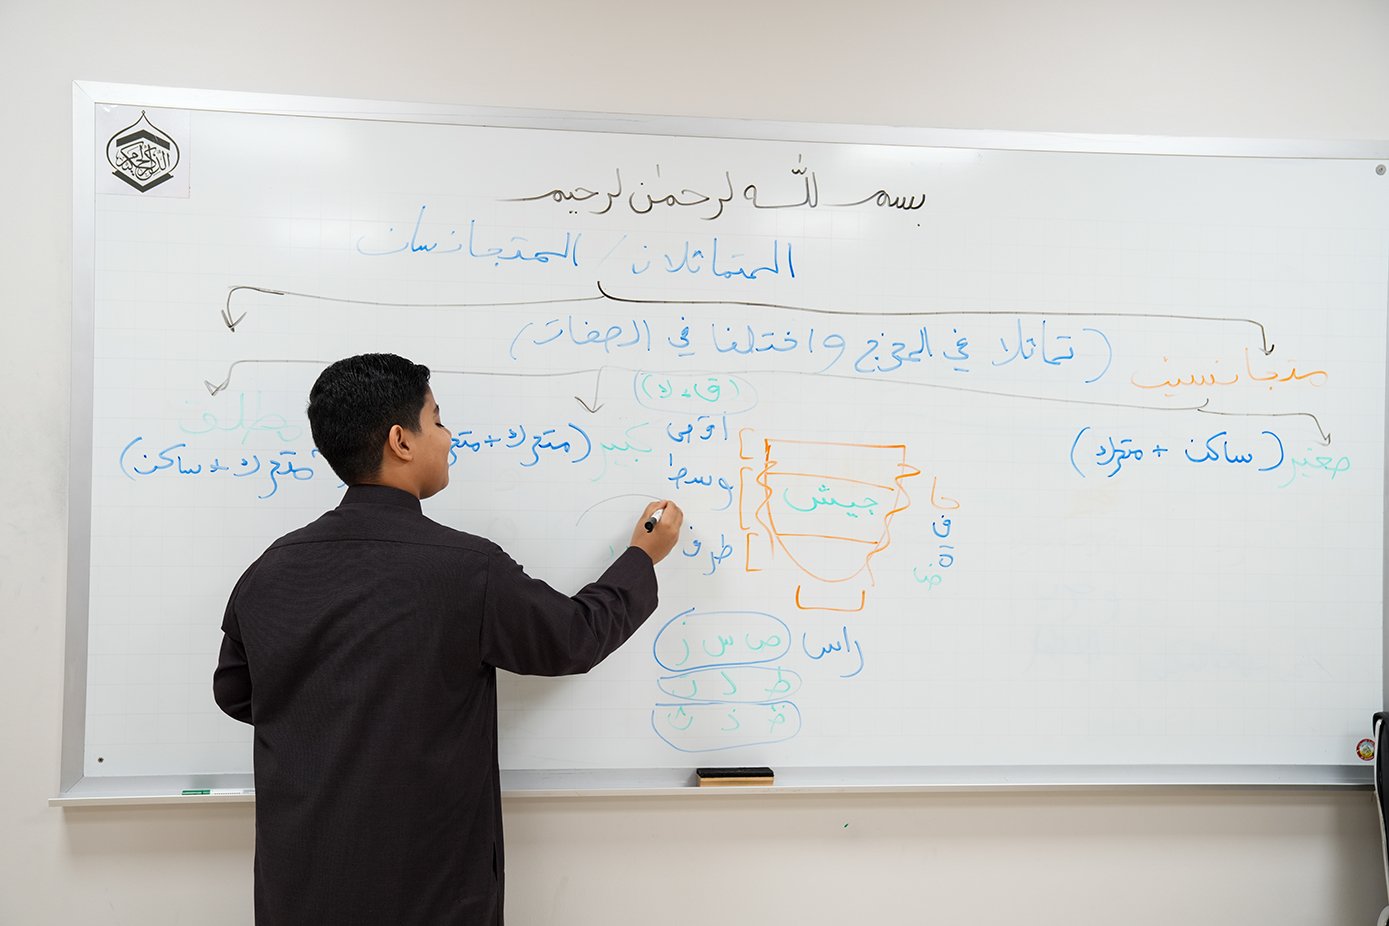 بسم لله لرحمٰن لرحيم
المتماثلان / المتجانسان
متجانسين (تماثلا في المخرج واختلفا في الصفات)
(ق + ك)
صغير (ساكن + متحرك)
كبير (متحرك + متحر
مطلق
متحرك + ساكن)
أقصى
وسط
طرف
جيش
حا
ف
ة
ض
راس
ص س ز
ط د ت
ظ ذ ث